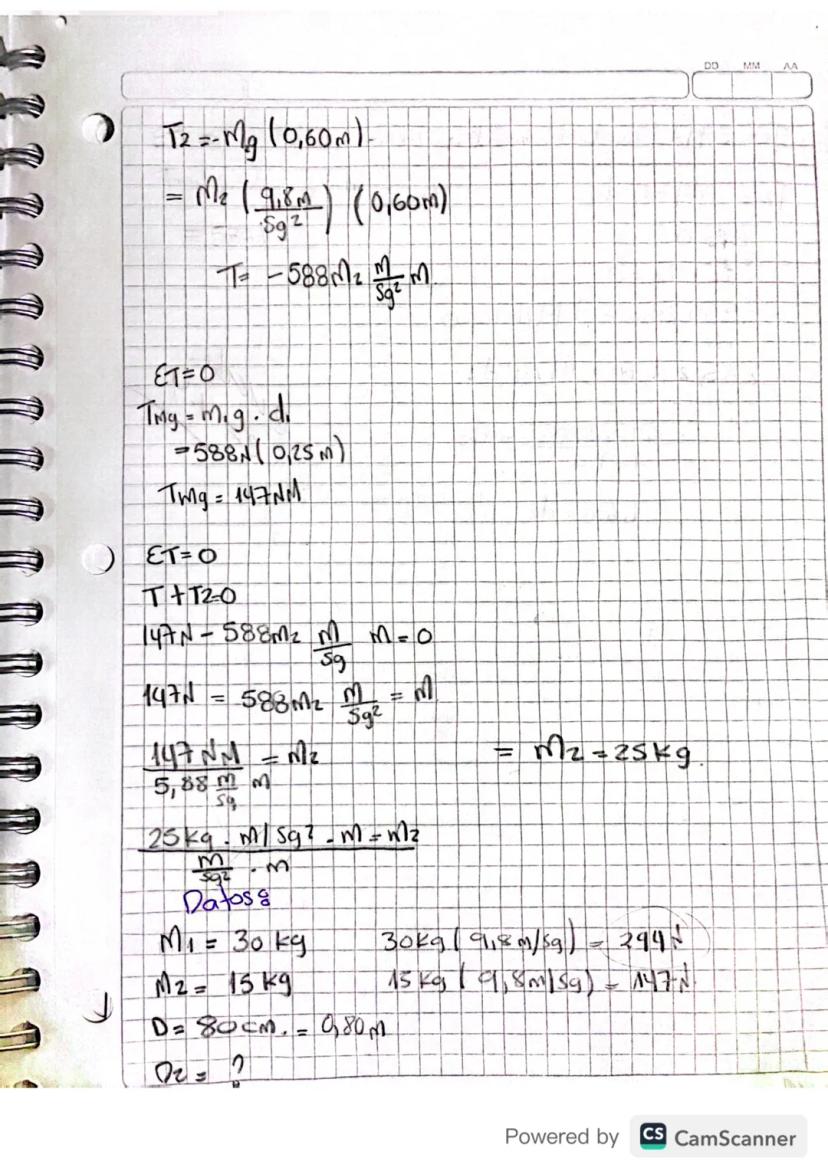 DD MM AA
T2 = -Mg (0,60m).
= M2 (9,8m/sg²) (0,60m)
T= -588M2 m/sg² m.
ΣT=0
TMg = m1g . d1
=588N (0,25m)
TMg = 147NM
ΣT=0
T+T2=0
147N - 588m2 m/sg m = 0
147N = 588m2 m/sg² = m
147 NM / 5,88 m/sg m = M2 = M2 = 25kg.
25kg . m/sg² . m = m2
m/sg² . m
Datos:
M1 = 30 kg 30kg (9,8 m/sg) = 294N
M2 = 15 kg 15 kg (9,8m/sg) = 147N
D = 80 cm. = 0,80m
D2 = ?
Powered by CS CamScanner